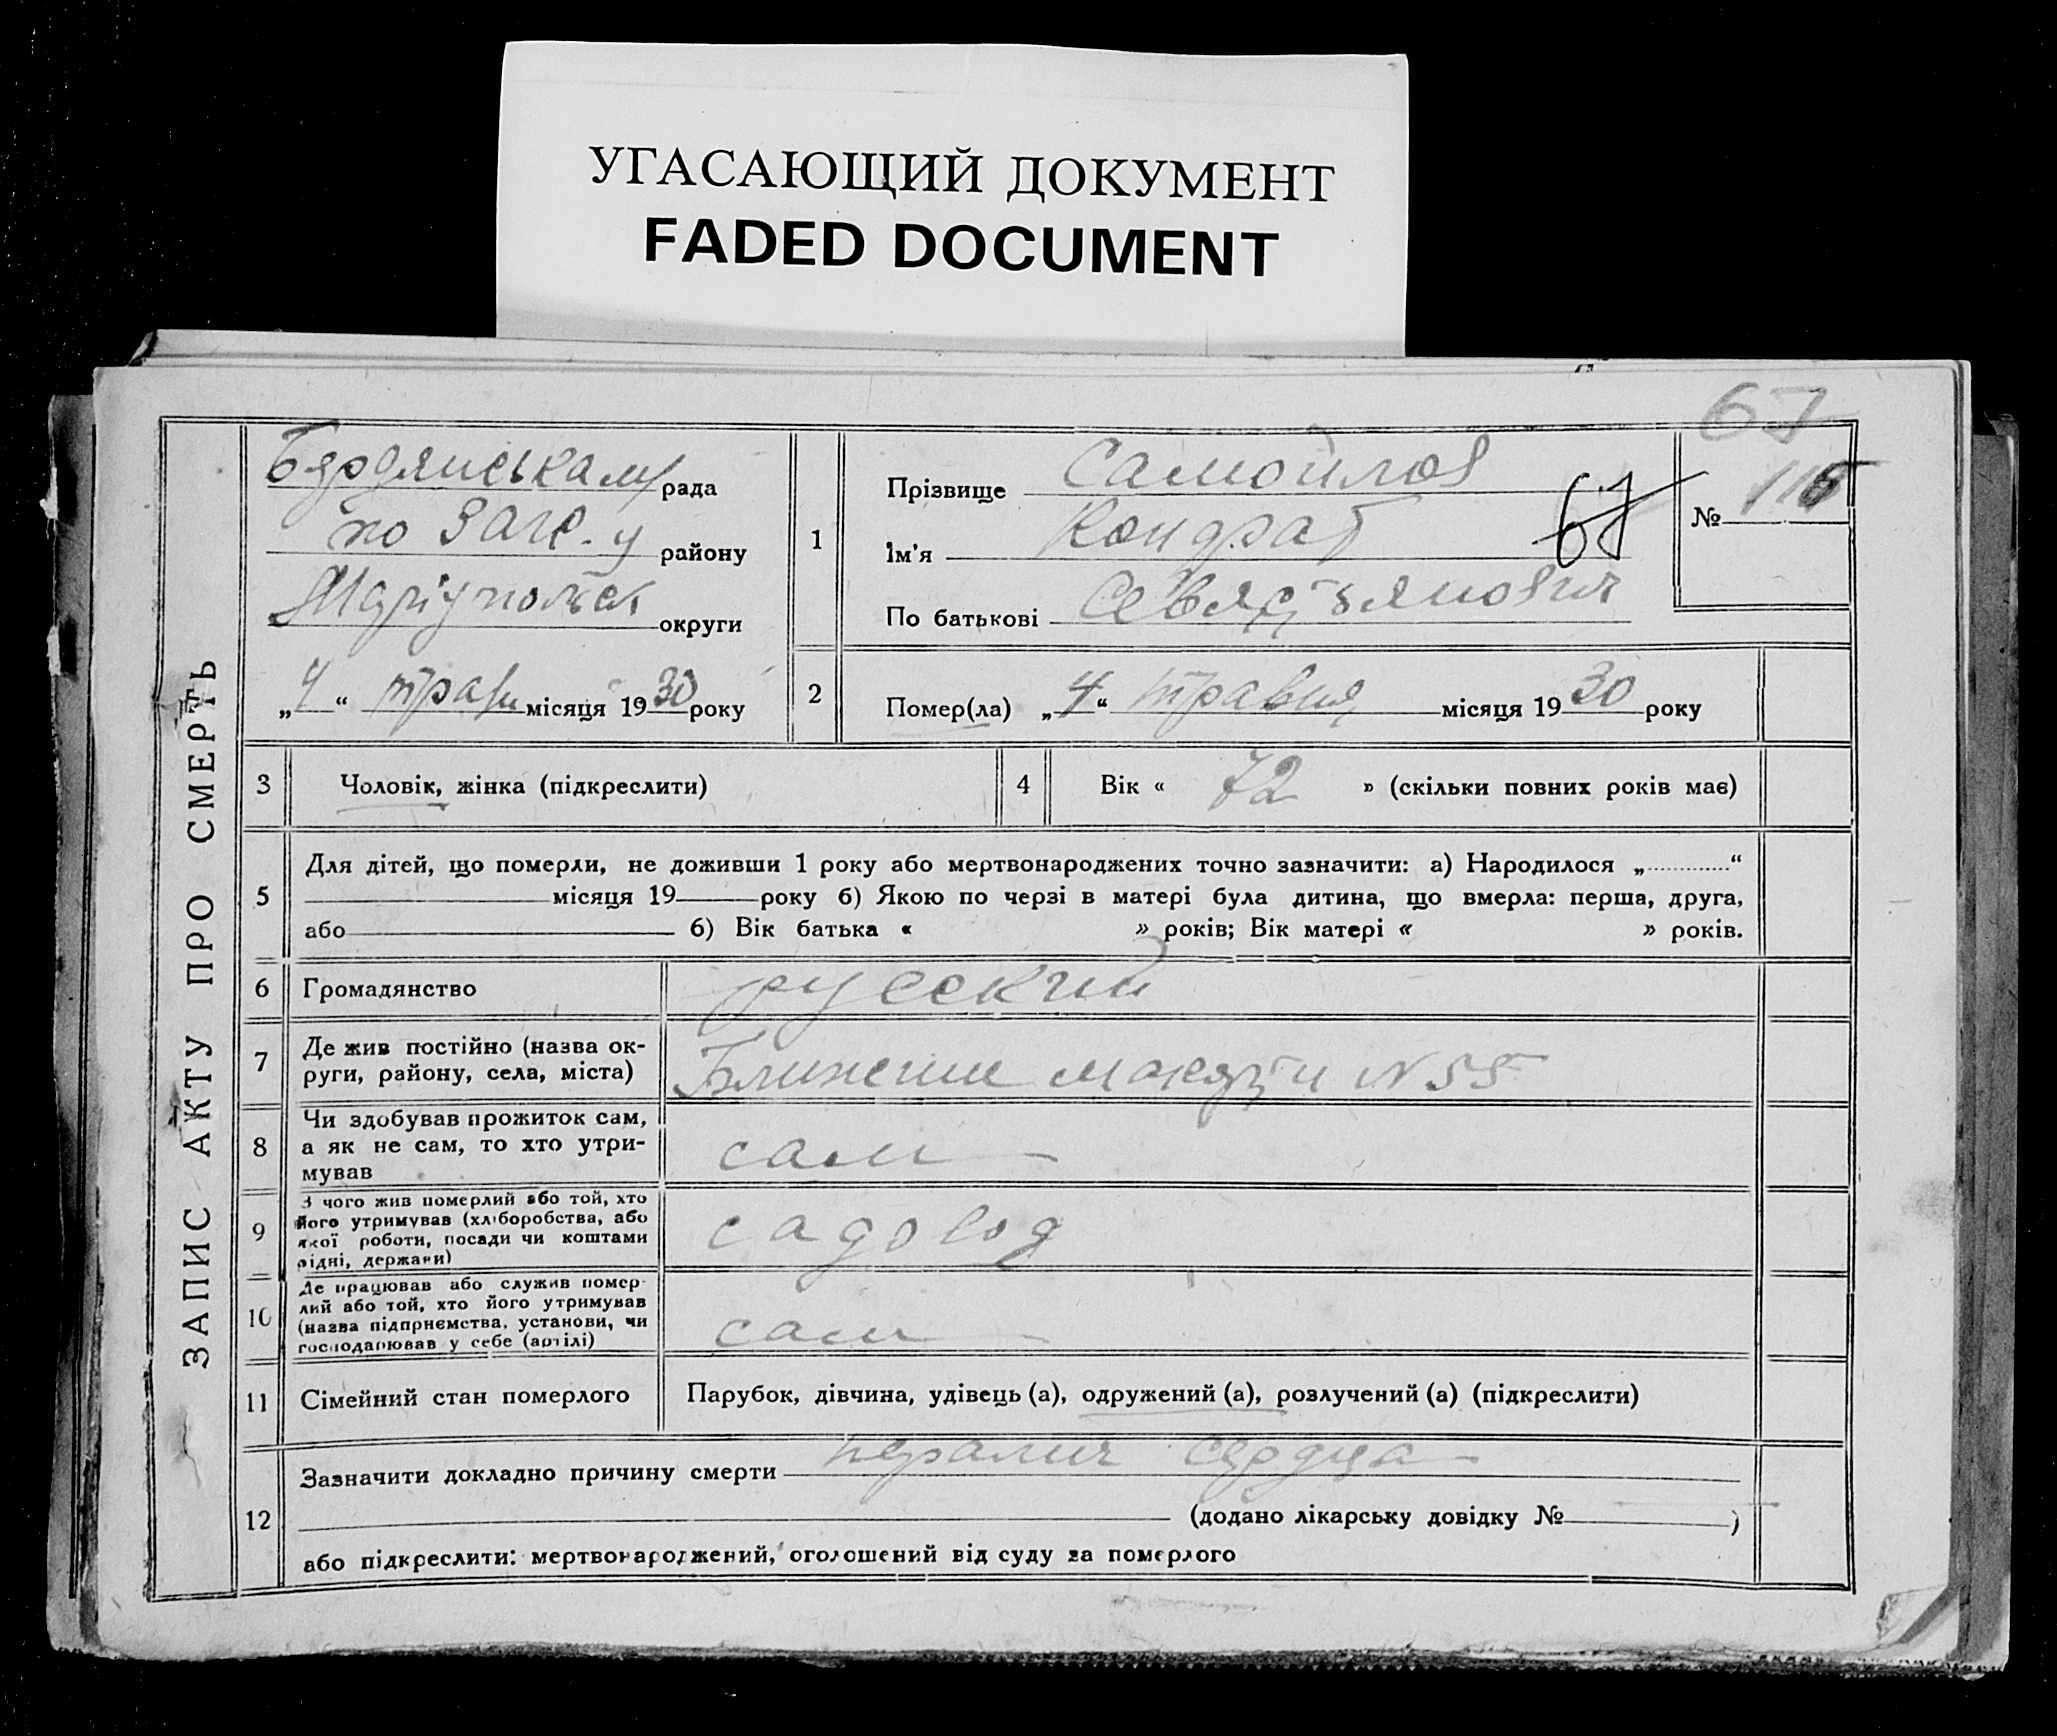 УГАСАЮЩИЙ ДОКУМЕНТ
FADED DOCUMENT
67
ЗАПИС АКТУ ПРО СМЕРТЬ
Бердянська м/рада
по Загс-у району
Маріупольськ округи
„4“ травн місяця 1930 року
1
Прізвище Самойлов
Ім'я Кондрат
По батькові Севастьянович
67
№ 116
2
Помер(ла) „4“ травня місяця 1930 року
3 Чоловік, жінка (підкреслити)
4 Вік « 72 » (скільки повних років має)
5
Для дітей, що померли, не доживши 1 року або мертвонароджених точно зазначити: а) Народилося „ “
місяця 19 року б) Якою по черзі в матері була дитина, що вмерла: перша, друга,
або б) Вік батька « » років; Вік матері « » років.
6 Громадянство русский
7 Де жив постійно (назва ок-
руги, району, села, міста)
Ближение N 55
8 Чи здобував прожиток сам,
а як не сам, то хто утри-
мував
сам —
9 З чого жив померлий або той, хто
його утримував (хліборобства, або
якої роботи, посади чи коштами
рідні, держави)
садовод
10 Де працював або служив помер-
лий або той, хто його утримував
(назва підприємства, установи, чи
господарював у себе (артілі)
сам —
11 Сімейний стан померлого Парубок, дівчина, удівець (а), одружений (а), розлучений (а) (підкреслити)
12
Зазначити докладно причину смерти паралич сердца
(додано лікарську довідку № )
або підкреслити: мертвонароджений, оголошений від суду за померлого